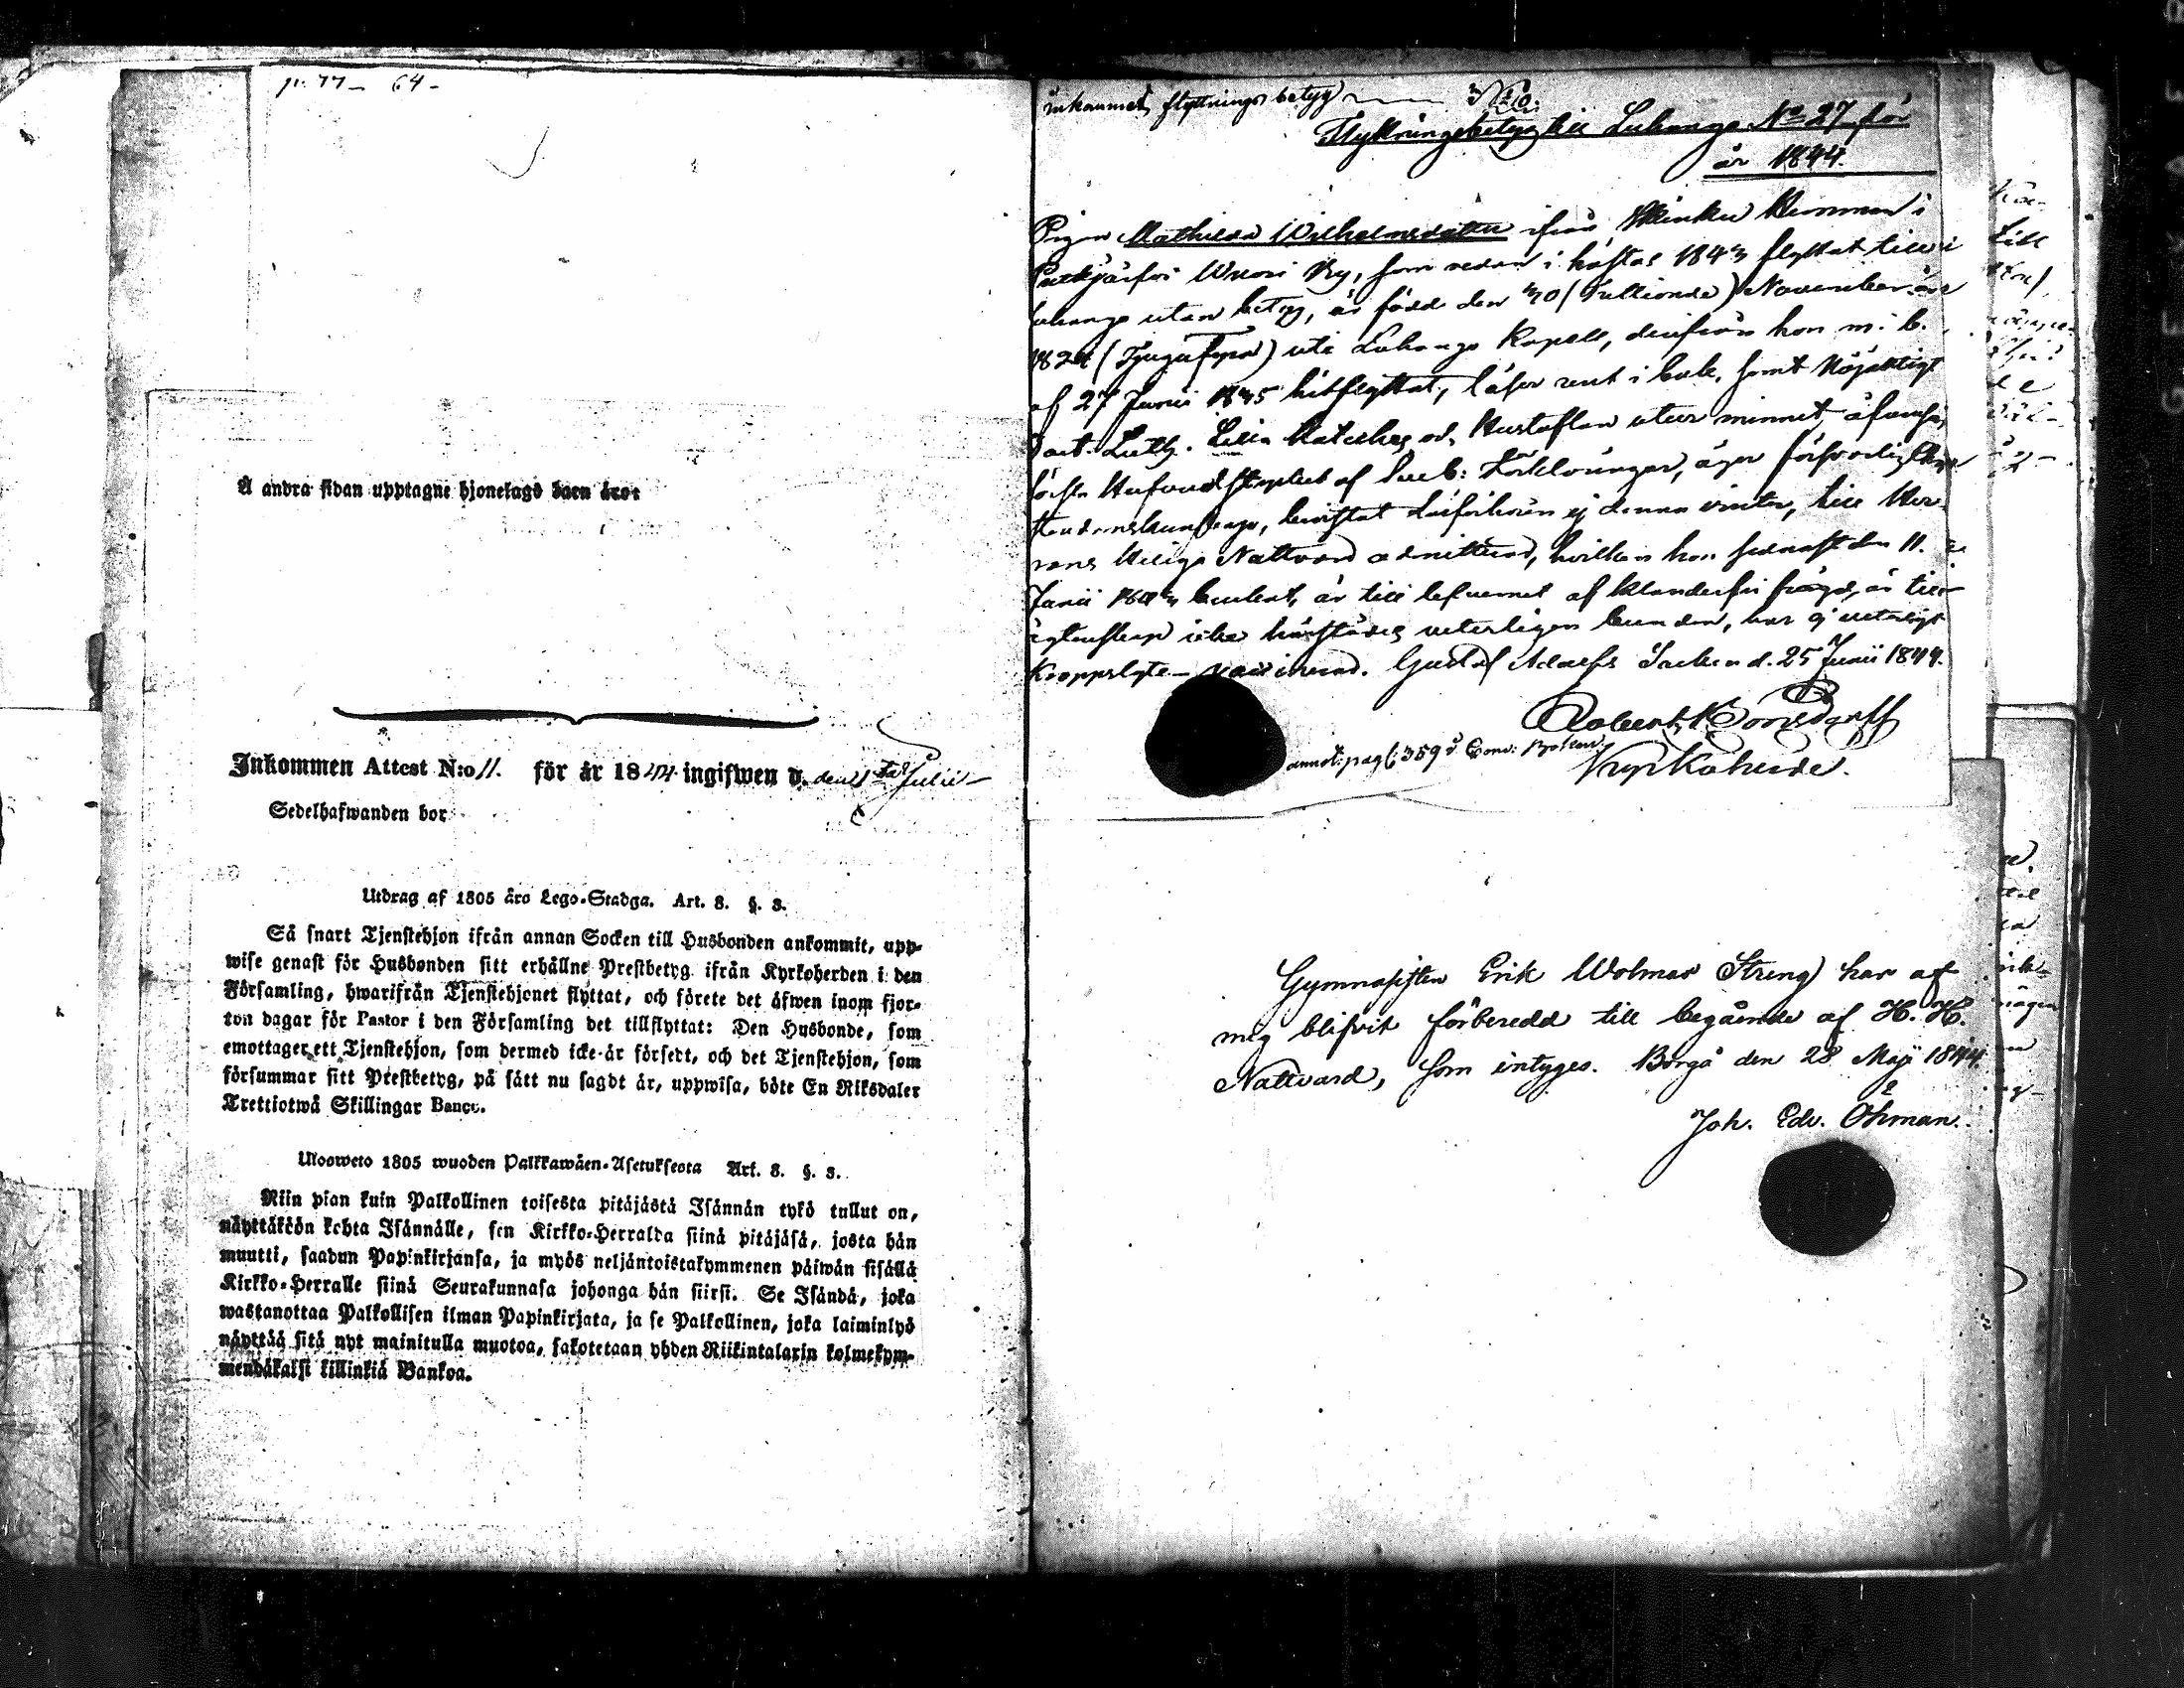 p. 77 - 64 -
Å andra sidan upptagne hjonelags barn äro:
Inkommen Attest N:o 11. för år 1844 ingifwen d. den 1sta Julii
Sedelhafwanden bor
Utdrag af 1805 års Lego-Stadga. Art. 8. §. 3.
Så snart Tjenstehjon ifrån annan Socken till Husbonden ankommit, upp-
wise genast för Husbonden sitt erhållne Prestbetyg ifrån Kyrkoherden i den
Församling, hwarifrån Tjenstehjonet flyttat, och förete det äfwen inom fjor-
ton dagar för Pastor i den Församling det tillflyttat: Den Husbonde, som
emottager ett Tjenstehjon, som dermed icke är försedt, och det Tjenstehjon, som
försummar sitt Prestbetyg, på sätt nu sagdt är, uppwisa, böte En Riksdaler
Trettiotwå Skillingar Banco.
Ulosweto 1805 wuoden Palkkawäen-Asetuksesta Art. 8. §. 3.
Niin pian kuin Palkollinen toisesta pitäjästä Isännän tykö tullut on,
näyttäköön kohta Isännälle, sen Kirkko-Herralda siinä pitäjäsä, josta hän
muutti, saadun Papinkirjansa, ja myös neljäntoistakymmenen päiwän sisällä
Kirkko-Herralle siinä Seurakunnasa johonga hän siirsi. Se Isändä, joka
wastanottaa Palkollisen ilman Papinkirjata, ja se Palkollinen, joka laiminlyö
näyttää sitä nyt mainitulla muotoa, sakotetaan yhden Riikintalarin kolmekym-
mendäkaksi killinkiä Bankoa.
inkommet flyttnings betyg
Flyttningsbetyg till Luhango No 27 för
år 1844.
Pigan Mathilda Wilhelmsdotter ifrån Hemman i
By, som redan i höstas 1843 flyttat till
Luhango utan betyg, är född den 30 (Trettionde) November år
1824 (Tjugufyra) uti Luhango Kapell, hon m. b.
af 27 Junii 1835 hitflyttat, läser rent i bok, samt Nöjaktigt
Doct. Luth. Lilla Katches och Hustaflan utur minnet, äfvensom
första Hufvudstycket af Förklaringar, äger försvarlig Chri-
stendomskunskap, bevistat Läsförhören ej denna vinter, till Her-
rans Heliga Nattvard admitterad, hvilken hon sednast den 11.
Junii 1843 begått, är till lefvernet af klanderfri frägd, är till
ägtenskap icke härstädes veterligen bunden, har ej veterligt
Kroppslyte - vaccinerad. Gustaf Adolfs Socken d. 25 Junii 1844.
Robert Bonsdorff
Kyrkoherde.
annot: pag: 359 i Com: Boken
Gymnasisten Erik Wolmar Streng har af
mig blifvit förberedd till begående af H. H.
Nattvard, som intyges. Borgå den 28 Maji 1844.
Joh. Edv. Öhman.